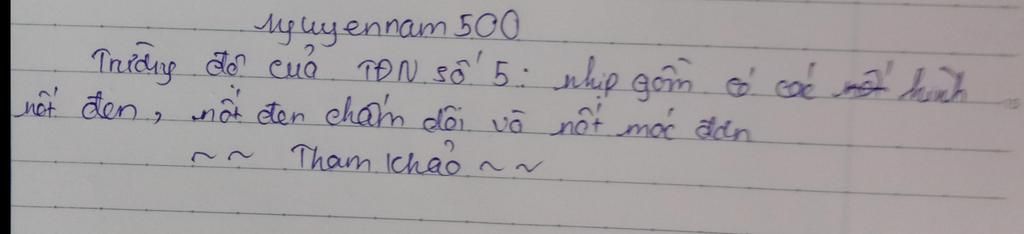 Nguyennam 500
Trường độ của TĐN số 5: nhịp gồm có các nốt hình
nốt đen, nốt đen chấm dôi và nốt móc đơn
~ ~ Tham khảo ~ ~